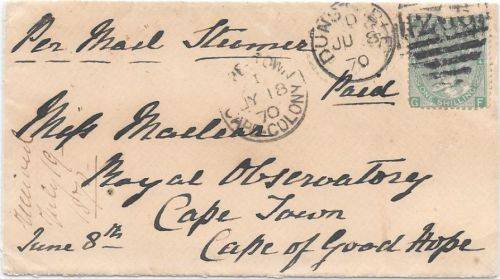 Per Mail Steamer
DUNSTABLE
JU 8
70
Paid
CAPE-TOWN
1
JY 18
70
CAPE-COLONY
G SHILLING F
Miss Maclear
Royal Observatory
Cape Town
Cape of Good Hope
June 8th
Received
July 19